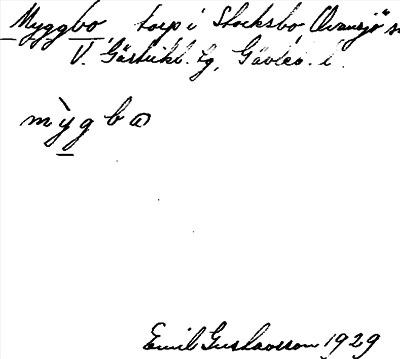 Myggbo, torp i Stocksbo, Ovansjö s
V. Gästrikl. tg, Gävleb. l.
mỳgbo
Emil Gustavsson 1929